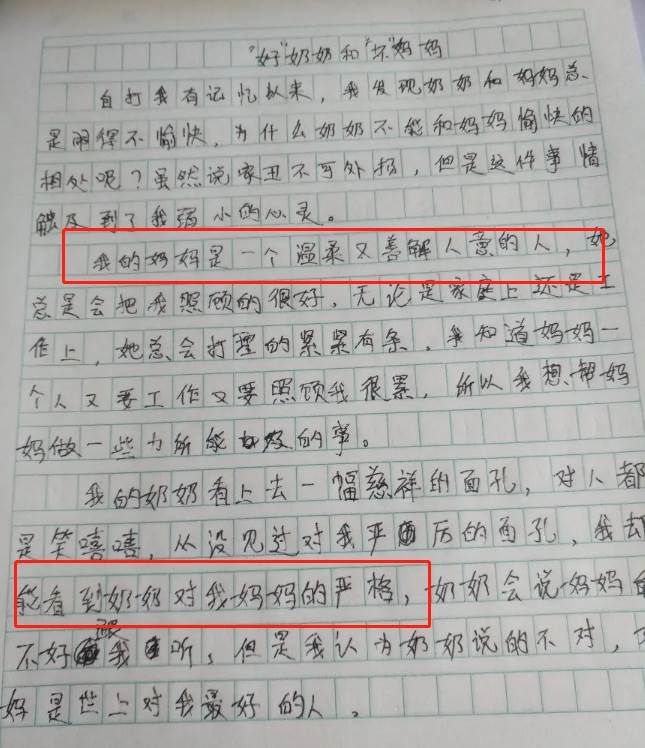 "好"奶奶和"坏"妈妈
自打我有记忆以来，我发现奶奶和妈妈总
是闹得不愉快，为什么奶奶不能和妈妈愉快的
相处呢？虽然说家丑不可外扬，但是这件事情
触及到了我弱小的心灵。
我的妈妈是一个温柔又善解人意的人，她
总是会把我照顾的很好，无论是家庭上还是工
作上，她总会打理的紧紧有条。我知道妈妈一
个人又要工作又要照顾我很累，所以我想帮妈
妈做一些力所能及的事。
我的奶奶看上去一幅慈祥的面孔，对人都
是笑嘻嘻，从没见过对我严厉的面孔，我却
能看到奶奶对我妈妈的严格，奶奶会说妈妈的
不好跟我听，但是我认为奶奶说的不对，
妈是世上对我最好的人。